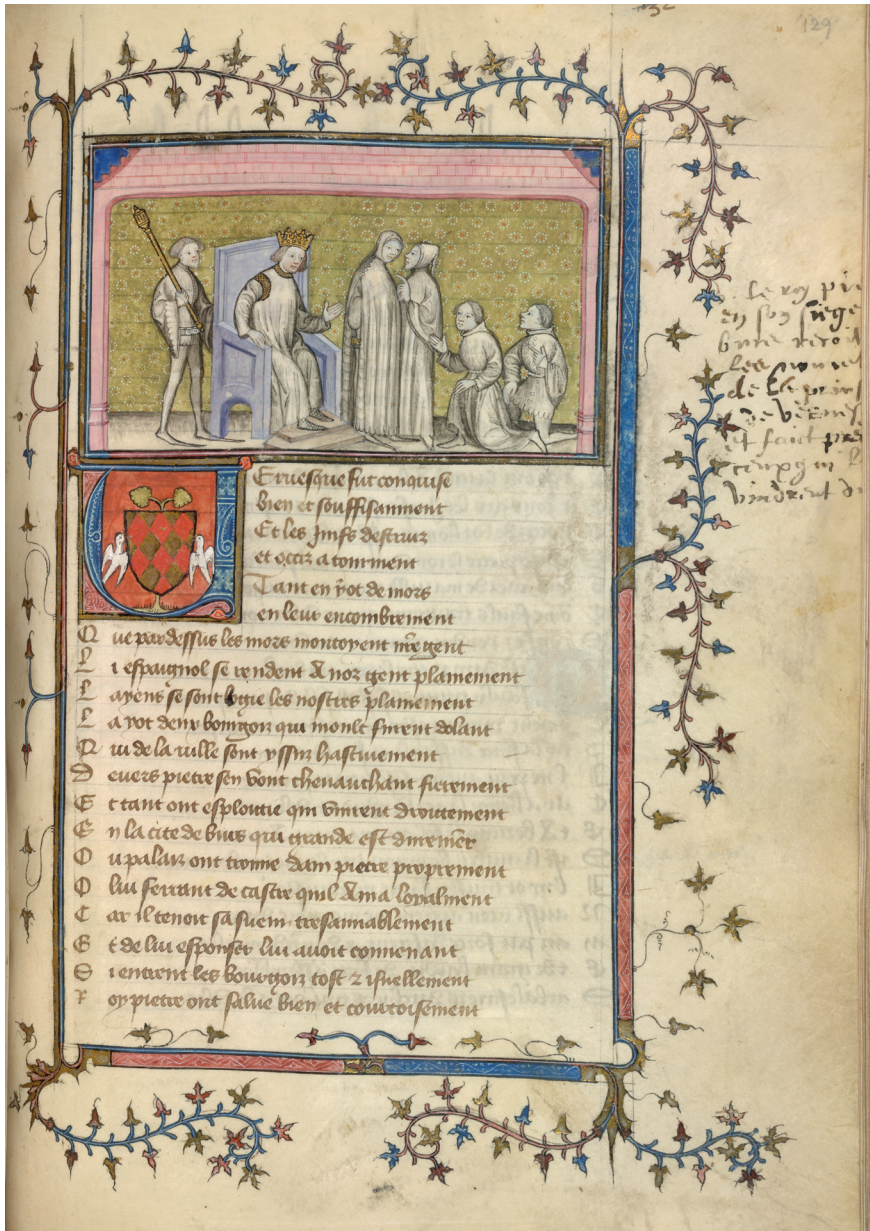 129
Le roy pi
en son siege
de la prin
vindrent d
Bruesque fut conquise
bien et souffisanment
Et les Juifs destruiz
et occiz a torment
Tant en y ot de mors
en leur encombrement
Que par dessus les mors montoyent nr̄e gent
Li espaignol se rendent a noz gent plainement
Layens se sont logie les nostres plainement
La yot deux borgoiz qui moult furent dolant
Qui de la ville sont yssuz hastivement
Devers pietre sen vont chevauchant fierement
Et tant ont esploitie qui vinrent droitement
En la cite de burs qui grande est
Ou palaiz ont trouve dam pietre proprement
O lui ferrant de castre quil ama loyalment
Car il tenoit sa suem tresamiablement
Et de lui esponser lui avoit convenant
Si entrent les bourgoiz tost z isnellement
Roy pietre ont salue bien et courtoisement